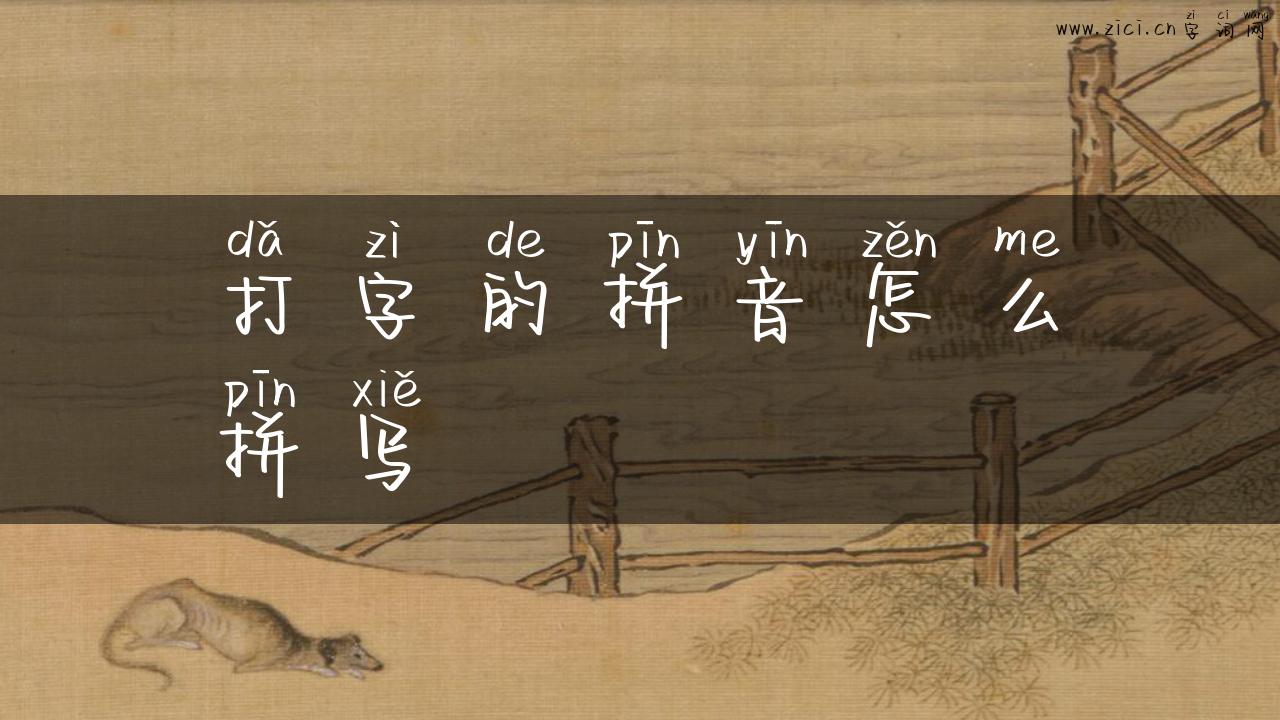 zi ci wang
www.zici.cn字词网
dǎ zì de pīn yīn zěn me
打字的拼音怎么
pīn xiě
拼写